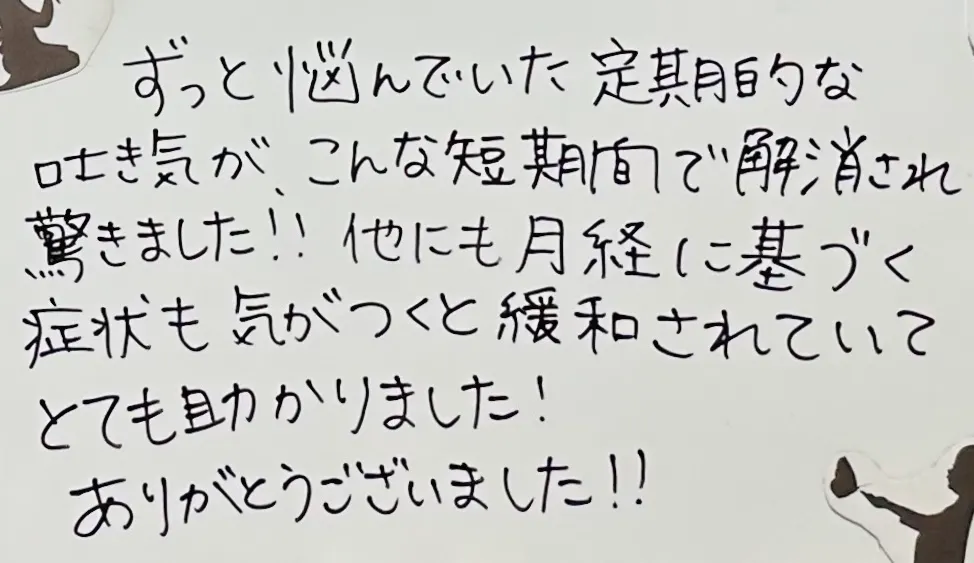 ずっと悩んでいた定期的な
吐き気が、こんな短期間で解消され
驚きました!! 他にも月経に基づく
症状も気がつくと緩和されていて
とても助かりました!
ありがとうございました!!